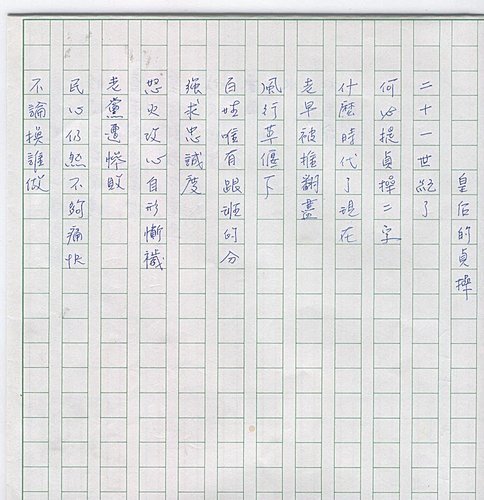 皇后的貞操
二十一世紀了
何必提貞操二字
什麼時代了現在
老早被推翻盡
風行草偃下
百姓唯有跟班的分
強求忠誠度
怒火攻心自形慚穢
老黨遭慘敗
民心仍然不夠痛快
不論換誰做